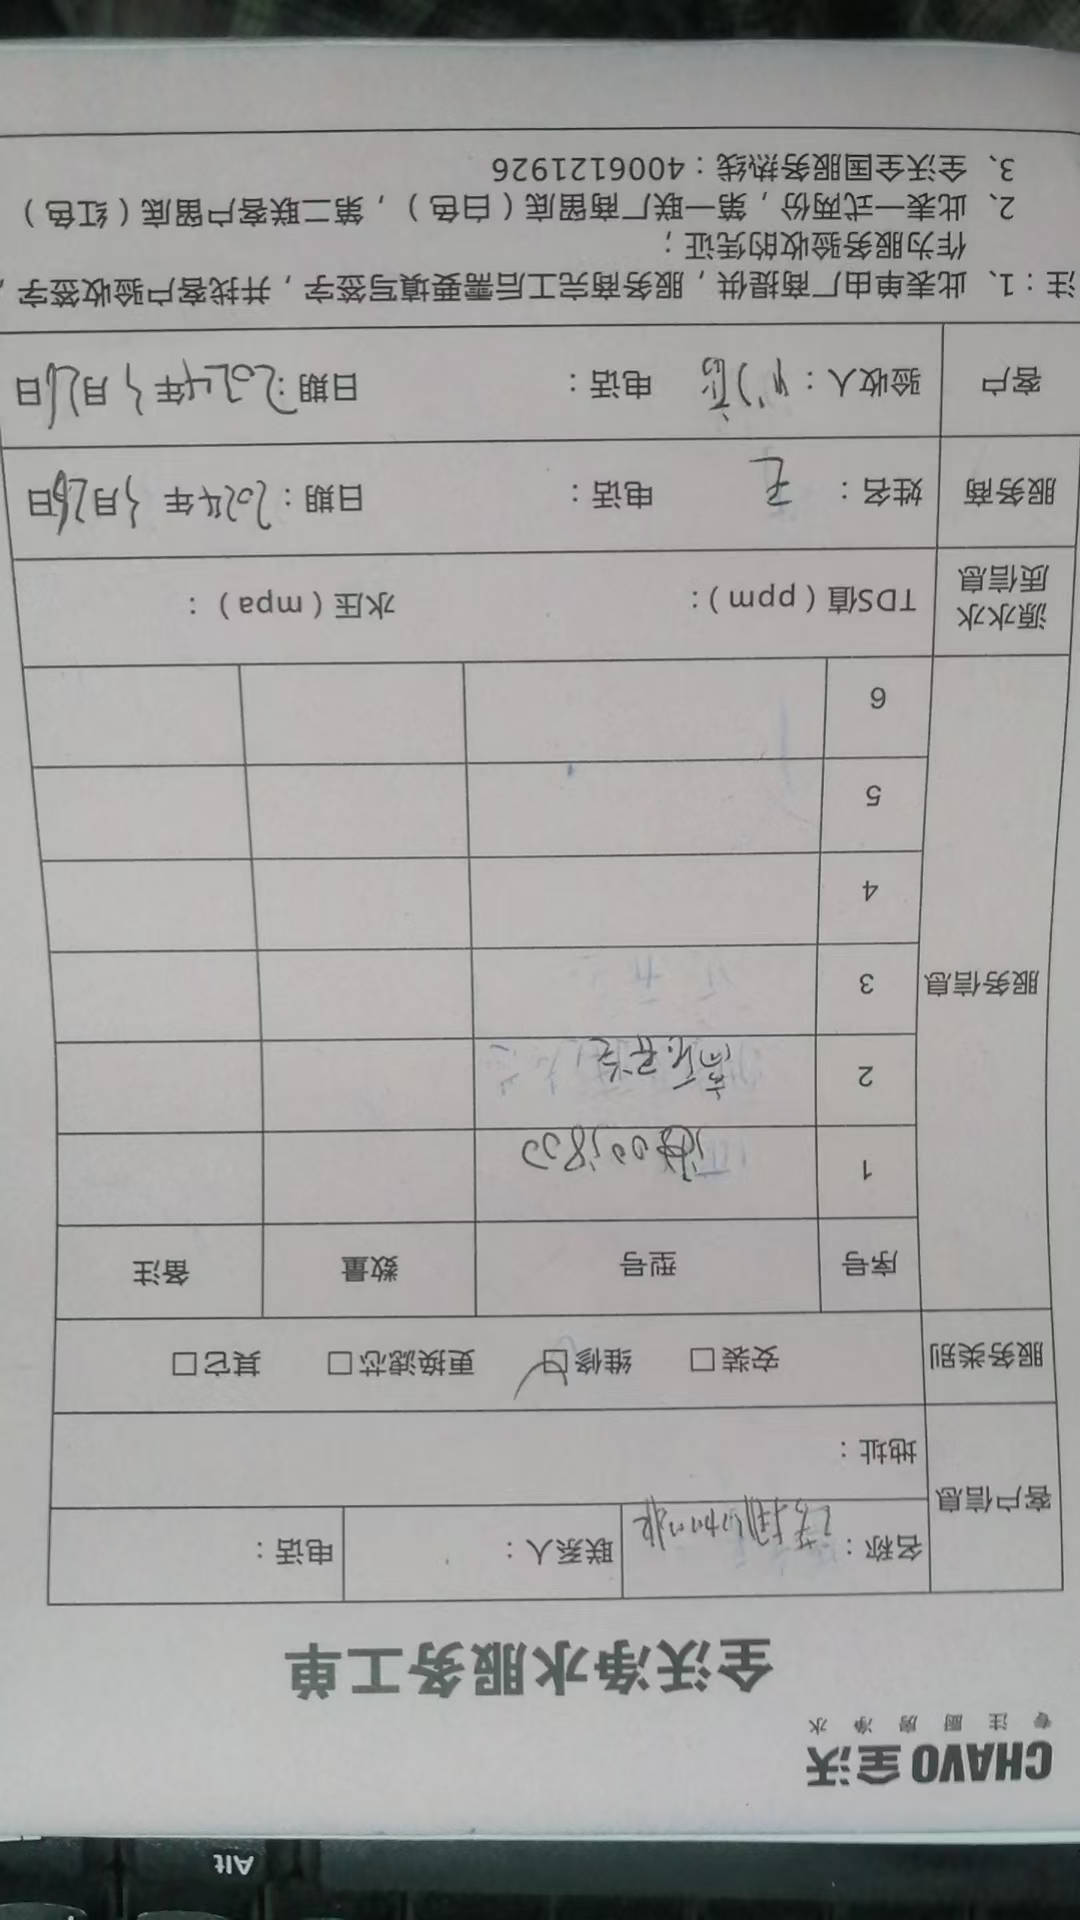 CHAVO 全沃
专注厨房净水
全沃净水服务工单
客户信息 名称： 联系人： 电话：
地址：
服务类别 安装□ 维修☑ 更换滤芯□ 其它□
服务信息 序号 型号 数量 备注
1
2
3
4
5
6
源水水质信息 TDS值（ppm）： 水压（mpa）：
服务商 姓名：王 电话： 日期：2024年3月26日
客户 验收人： 电话： 日期：2024年3月26日
注：1、此表单由厂商提供，服务商完工后需要填写签字，并找客户验收签字，
作为服务验收的凭证；
2、此表一式两份，第一联厂商留底（白色），第二联客户留底（红色）
3、全沃全国服务热线：4006121926
Alt